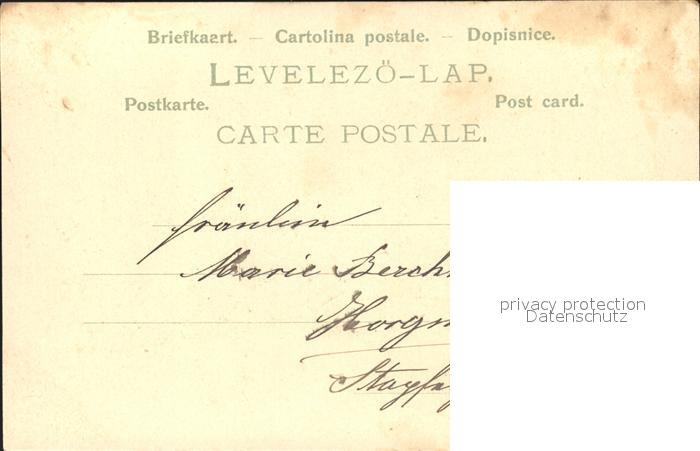 Briefkaart. – Cartolina postale. – Dopisnice.
LEVELEZÖ-LAP.
Postkarte. Post card.
CARTE POSTALE.
Fräulein
Marie Berch
privacy protection
Datenschutz